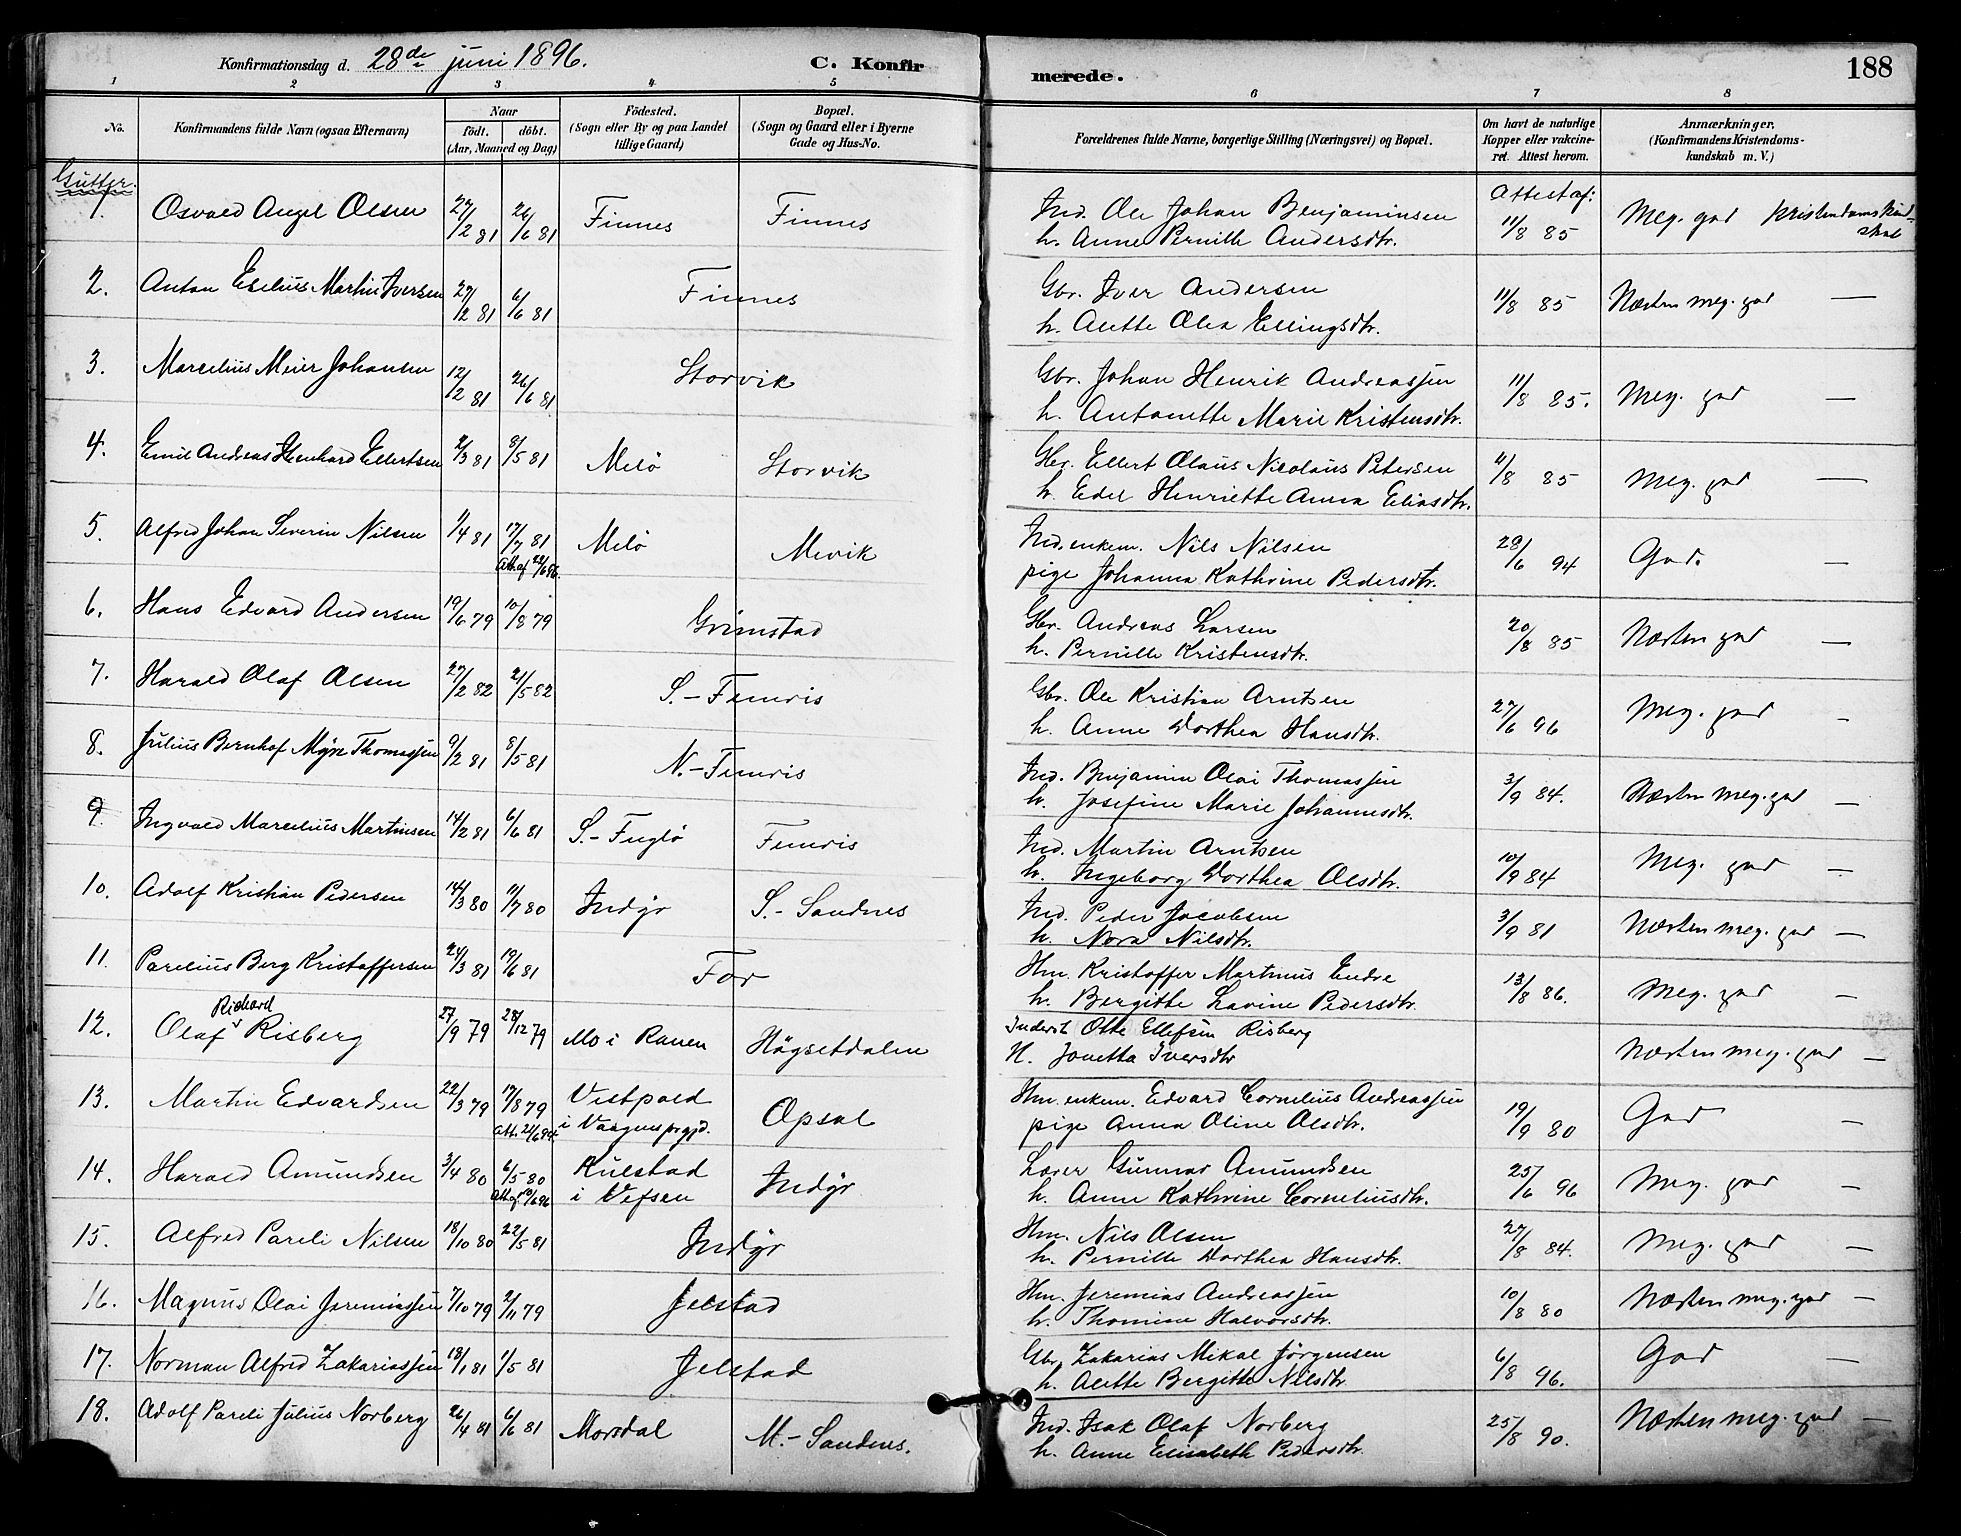 Konfirmationsdag d. 28de juni 1896.
C. Konfirmerede.
188
1 2 3 4 5 6 7 8
No.
Konfirmandens fulde Navn (ogsaa Efternavn)
Naar
födt. döbt.
(Aar, Maaned og Dag)
Födested.
(Sogn eller By og paa Landet
tillige Gaard)
Bopæl.
(Sogn og Gaard eller i Byerne
Gade og Hus-No.
Forældrenes fulde Navne, borgerlige Stilling (Næringsvei) og Bopæl.
Om havt de naturlige
Kopper eller vakcine-
ret. Attest herom.
Anmærkninger.
(Konfirmandens Kristendoms-
kundskab m. V.)
Gutter.
Attest af:
1. Osvald Angel Olsen 27/2 81 26/6 81 Finnes Finnes Ind. Ole Johan Benjaminsen 11/8 85 Meg. god Kristendomskund-
skab
h. Anne Pernille Andersdtr.
2. Anton Eselius Martin Iversen 27/2 81 6/6 81 Finnes Gbr. Iver Andersen 11/8 85 Næsten meg. god —
h. Anette Olea Ellingsdtr.
3. Marselius Meier Johansen 12/2 81 26/6 81 Storvik Gbr. Johan Henrik Andreassen 11/8 85. Meg. god —
h. Antonette Marie Kristensdtr.
4. Emil Andreas Henhard Ellertsen 2/3 81 8/5 81 Melö Storvik Gbr. Ellert Olaus Nicolaus Petersen 11/8 85 Meg. god —
h. Eder Henriette Anna Eliasdtr.
5. Alfred Johan Severin Nilsen 1/4 81 17/7 81 Melö Mevik Ind. enkem. Nils Nilsen 28/6 94 God. —
Att. af 22/6 96. pige Johanna Kathrine Pedersdtr.
6. Hans Edvard Andersen 19/6 79 10/8 79 Grimstad Gbr. Andreas Larsen 20/8 85 Næsten god —
h. Pernille Kristensdtr.
7. Harald Olaf Olsen 27/2 82 21/5 82 S.-Femris Gbr. Ole Kristian Arntsen 27/6 96 Meg. god —
h. Anne Dorthea Hansdtr.
8. Julius Bernhof Myre Thomassen 9/2 81 8/5 81 N.-Femris Ind. Benjamin Olai Thomassen 3/9 84. Næsten meg. god —
h. Josefine Marie Johannesdtr.
9. Ingvald Marselius Martinsen 14/2 81 6/6 81 S.-Fuglö Femris Ind. Martin Arntsen 10/9 84 Meg. god —
h. Ingeborg Dorthea Olsdtr.
10. Adolf Kristian Pedersen 14/3 80 11/7 80 Indyr S.-Sandnes Ind. Peder Jacobsen 3/9 81 Næsten meg. god —
h. Nora Nilsdtr.
11. Parelius Berg Kristoffersen 24/3 81 19/6 81 For Hm. Kristoffer Martinus Endre 13/8 86. Meg. god —
h. Bergitte Lavine Pedersdtr.
Richard
12. Olaf Risberg 27/9 79 28/12 79 Mo i Ranen Högsetdalen Inderst Otto Ellefsen Risberg Næsten meg. god —
H. Jonetta Iversdtr
13. Martin Edvardsen 22/3 79 17/8 79 Vestpold Opsal Hm. enkem. Edvard Cornelius Andreassen 19/9 80 God —
Att. 21/6 94. i Vaagens prgjd. pige Anna Oline Olsdtr.
14. Harald Amundsen 3/4 80 6/5 80 Kulstad Indyr Lærer Gunnar Amundsen 25/6 96 Meg. god —
i Vefsen h. Anne Kathrine Corneliusdtr.
15. Alfred Pareli Nilsen 18/10 80 22/5 81 Indyr Hm. Nils Olsen 27/8 84. Meg. god —
h. Pernille Dorthea Hansdtr.
16. Magnus Olai Jeremiassen 7/10 79 2/11 79 Jelstad Hm. Jeremias Andreassen 10/8 80 Næsten meg. god —
h. Thomine Halvorsdtr.
17. Norman Alfred Zakariassen 18/1 81 1/5 81 Jelstad Gbr. Zakarias Mikal Jörgensen 6/8 96. God —
h. Alette Bergitte Nilsdtr
18. Adolf Pareli Julius Norberg 26/4 81 6/6 81 Morsdal M.-Sandnes. Ind. Isak Olaf Norberg 25/8 90. Næsten meg. god —
h. Anne Elisabeth Pedersdtr.